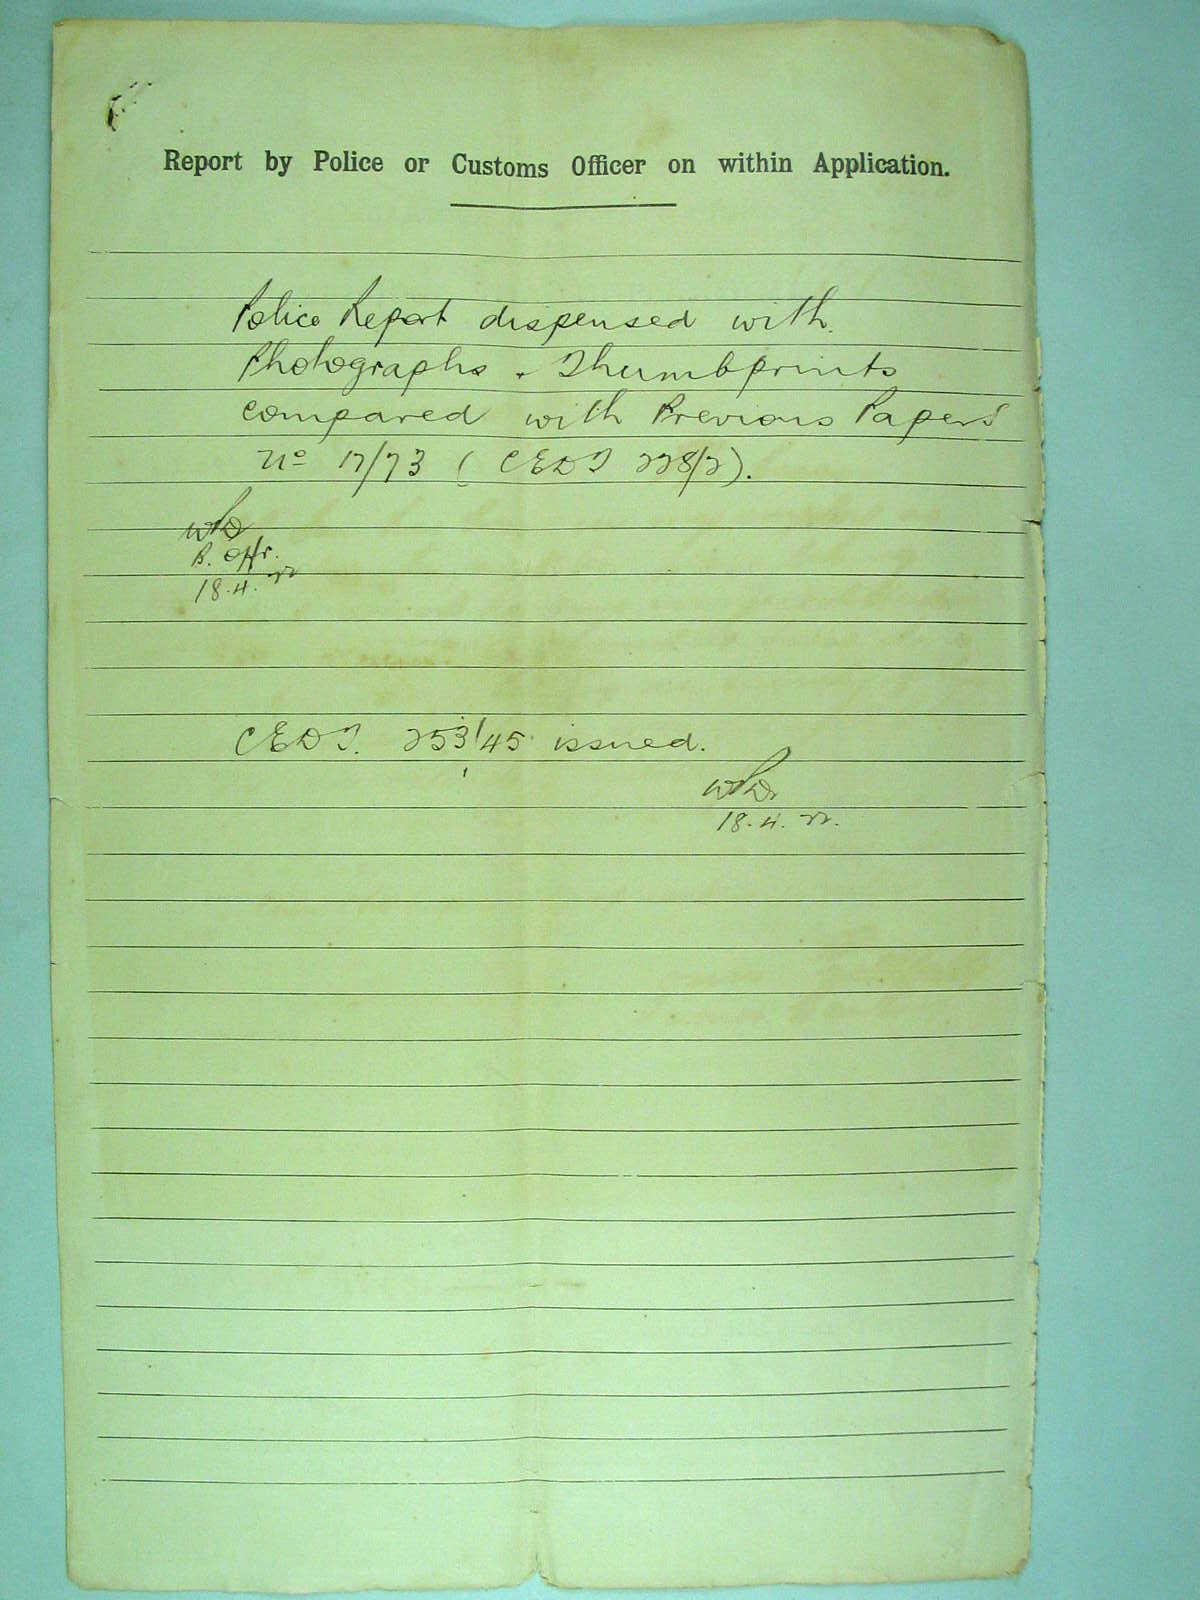 Report by Police or Customs Officer on within Application.
Police Report dispensed with.
Photographs & Thumbprints
compared with Previous Papers
No 17/73 (CEDT 228/2).
B. Offr.
18.4.22
CEDT. 253/45 issued.
18.4.22.